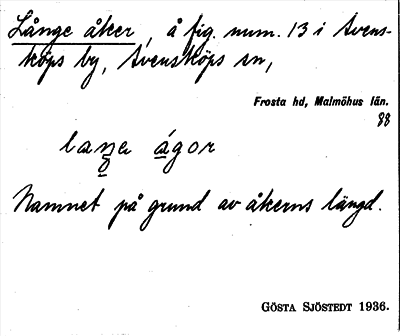 Långe åker, å fig. num. 13 i Svens-
köps by, Svensköps sn,
Frosta hd, Malmöhus län.
88
laŋe ágor
Namnet på grund av åkerns längd.
GÖSTA SJÖSTEDT 1936.